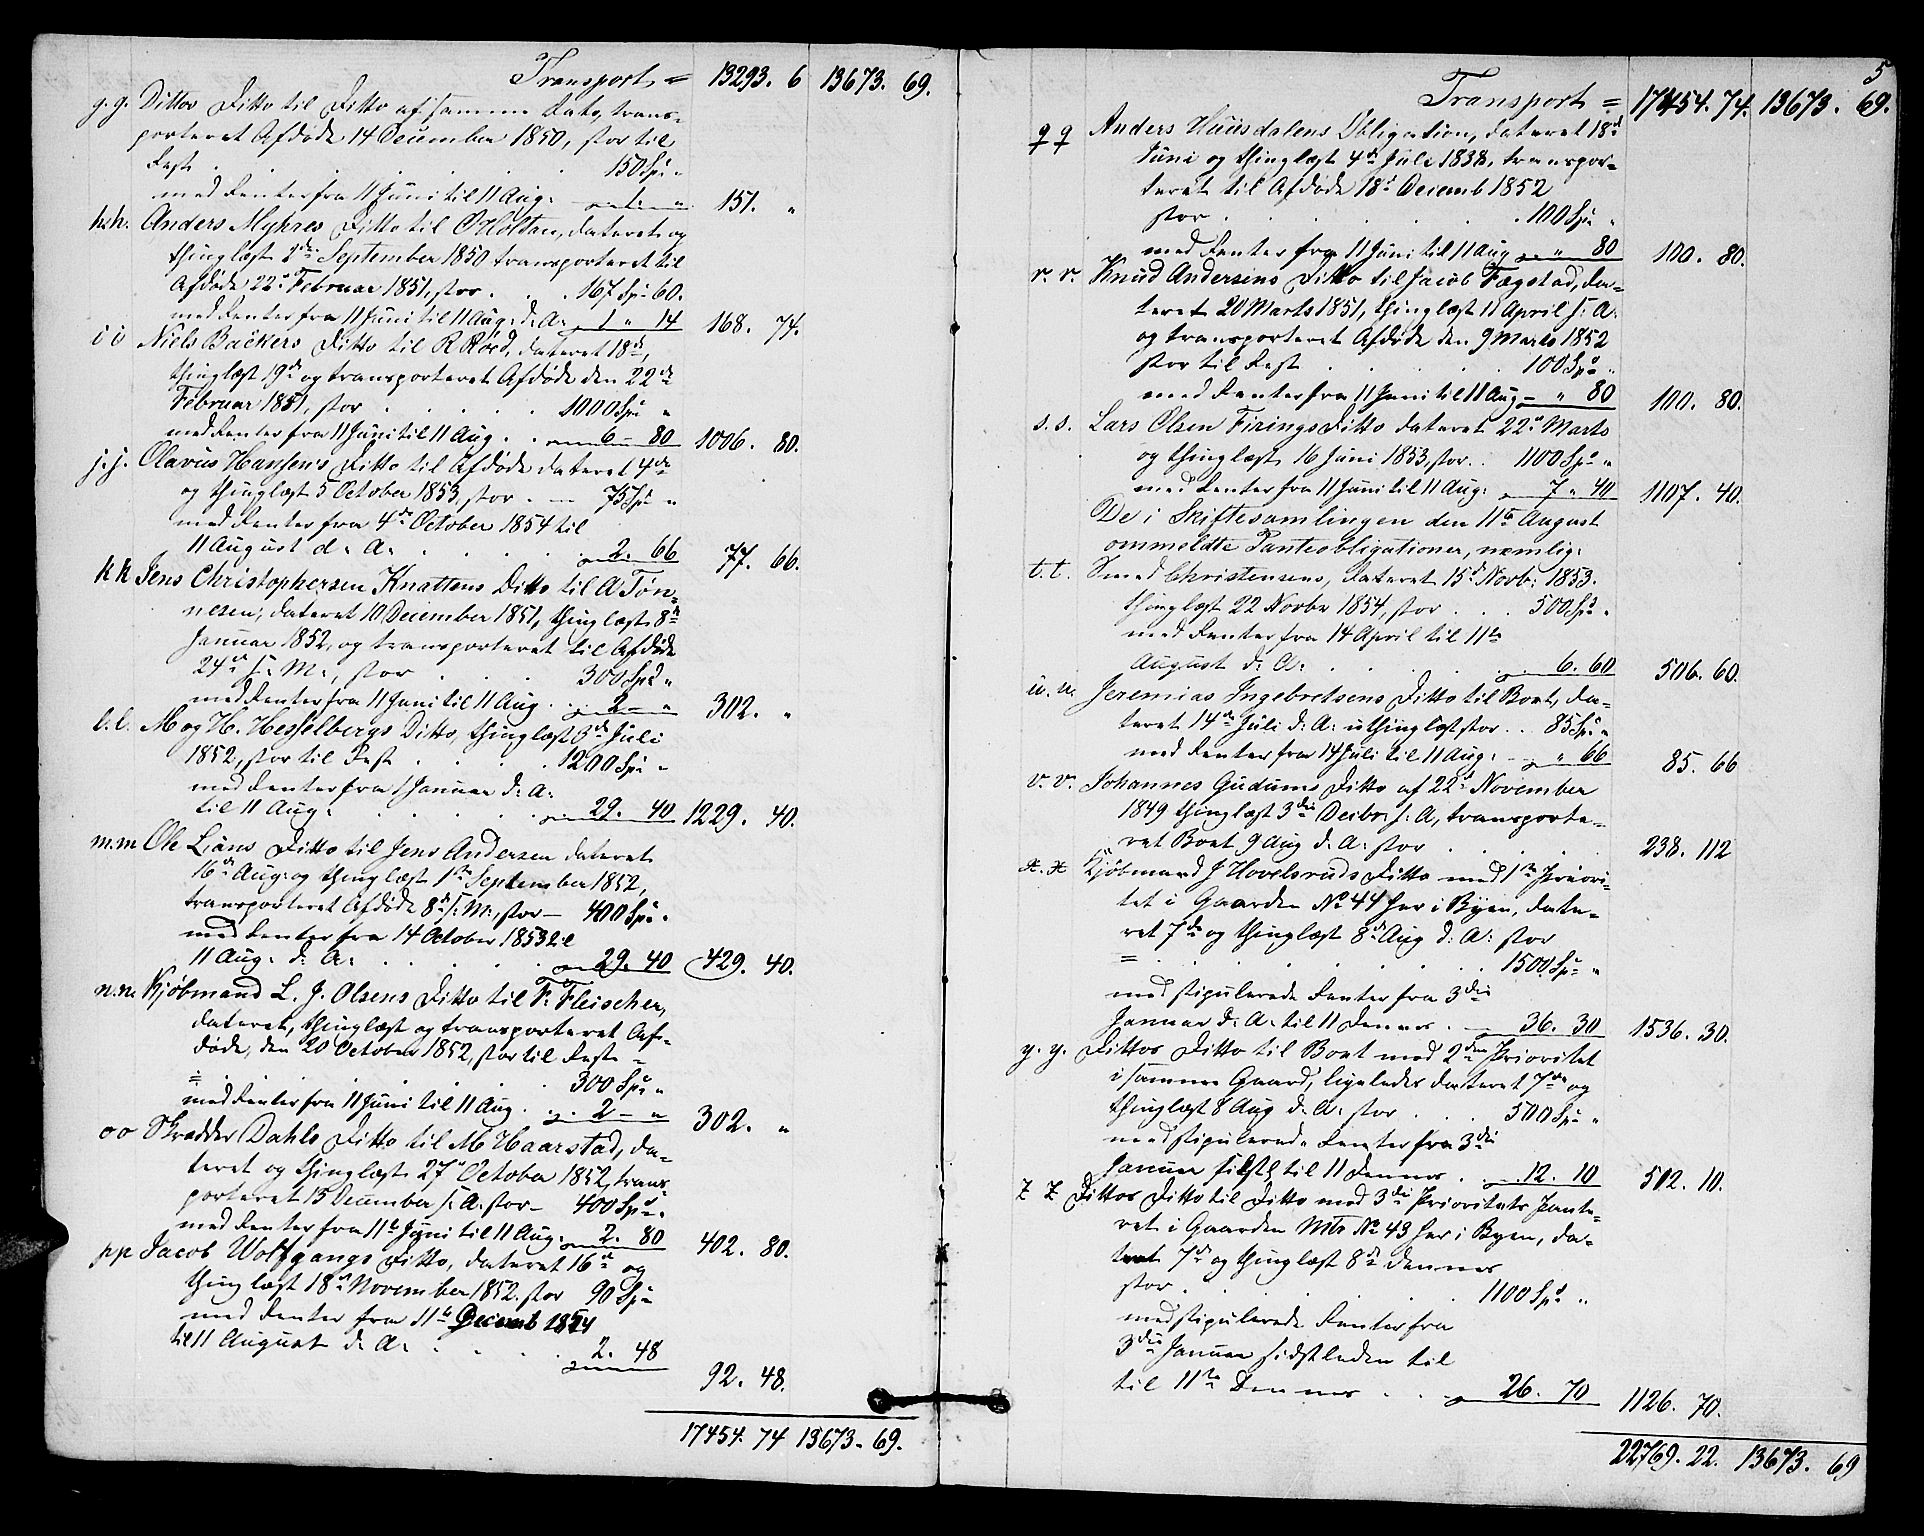 Transport = 13293. 6 13673. 69.
g. g. Dittos Ditto til Ditto af samme Dato, trans-
porteret Afdøde 14 December 1850, stor til
Rest . . . . 150 Spd "
med Renter fra 11 Juni til 11 Aug. 1. " 151. "
h.h. Anders Myhres Ditto til O Holtan, dateret og
thinglæst 2de September 1850 transporteret til
Afdøde 22de Februar 1851, stor . . 167 Spd 60.
med Renter fra 11 Juni til 11 Aug: d: A: 1 " 14 168. 74.
i i Niels Backers Ditto til R Roed, dateret 18de,
thinglæst 19de og transporteret Afdøde den 22de
Februar 1851, stor . . . . 1000 Spd "
med Renter fra 11 Juni til 11 Aug. . 6 - 80 1006. 80.
j. j. Olavus Hansens Ditto til Afdøde dateret 4de
og thinglæst 5 October 1853, stor . - 75 Spd "
med Renter fra 4de October 1854 til
11 August d: A: . . . . 2. 66 77. 66.
k k Jens Christophersen Knattens Ditto til A Tøn-
nesen, dateret 10 December 1851, thinglæst 8de
Januar 1852, og transporteret til Afdøde
24de s: M:, stor . . . 300 Spd "
med Renter fra 11 Juni til 11 Aug . . 2 - " 302. "
l. l. M og H. Hesselbergs Ditto, thinglæst 3de Juli
1852, stor til Rest . . . . 1200 Spd "
med Renter fra 1 Januar d: A:
til 11 Aug. . . . . 29. 40 1229. 40.
m.m Ole Lians Ditto til Jens Andersen dateret
16de Aug: og thinglæst 1ste September 1852,
transporteret Afdøde 8de s: M:, stor - 400 Spd "
med Renter fra 14 October 1853 til
11 Aug: d: A: . . . . 29. 40 429. 40.
n.n. Kjøbmand L. J. Olsens Ditto til F. Fleischer,
dateret, thinglæst og transporteret Af-
døde, den 20 October 1852, stor til Rest -
= . . . . 300 Spd "
med Renter fra 11 Juni til 11 Aug . . 2 - " 302. "
o o Skrædder Dahls Ditto til M Haarstad, da-
teret og thinglæst 27de October 1852, trans-
porteret 13 December s: A: stor - 400 Spd "
med Renter fra 11te Juni til 11 Aug: 2. 80 402. 80.
p p Jacob Wolfgangs Ditto, dateret 16de og
thinglæst 18de November 1852. stor 90 Spd
med Renter fra 11te Decemb 1854
til 11 August d: A: . . . . 2. 48
92. 48.
17454. 74 13673. 69.
5
Transport = 17454. 74. 13673. 69.
q q Anders Huusdalens Obligation, dateret 18de
Juni og thinglæst 4de Juli 1838, transpor-
teret til Afdøde 18de Decemb 1852
stor . . . . . 100 Spd "
med Renter fra 11 Juni til 11 Aug " 80 100. 80.
r. r. Knud Andersens Ditto til Jacob Fægstad, da-
teret 20 Marts 1851, thinglæst 11 April s: A:
og transporteret Afdøde den 9 Marts 1852
stor til Rest . . . . 100 Spd "
med Renter fra 11 Juni til 11 Aug - " 80 100. 80.
s. s. Lars Olsen Firings Ditto dateret 22de Marts
og thinglæst 16 Juni 1853, stor . . 1100 Spd "
med Renter fra 11 Juni til 11 Aug: 7 " 40 1107. 40.
De i Skiftesamlingen den 11te August
ommeldte Panteobligationer, nemlig:
t. t. Smed Christensens, dateret 15de Novb: 1853.
thinglæst 22 Novbr 1854, stor . . . 500 Spd "
med Renter fra 14 April til 11te
August d: A: . . . . 6. 60 506. 60.
u. u. Jeremias Ingebretsens Ditto til Boet, da-
teret 14de Juli d: A: uthinglæst stor . . 85 Spd "
med Renter fra 14 Juli til 11 Aug: - " 66 85. 66
v. v. Johannes Gudums Ditto af 22de November
1849 thinglæst 3die Decbr: s: A, transporte-
ret Boet 9 Aug d: A: stor . . . . 238. 112
x. x Kjøbmand J Hovelsruds Ditto med 1ste Priori-
tet i Gaarden No 44 her i Byen, date-
ret 7de og thinglæst 8de Aug d: A: stor
= . . . . . 1500 Spd "
med stipulerede Renter fra 3die
Januar d: A: til 11 dennes . - 36. 30 1536. 30.
y. y. Dittos Ditto til Boet med 2den Prioritet
i samme Gaard, ligeledes dateret 7de og
thinglæst 8 Aug d: A: stor . . . 500 Spd "
med stipulerede Renter fra 3die
Januar sidstl til 11 dennes . . 12. 10 512. 10.
z z Dittos Ditto til Ditto med 3die Prioritets Pante-
ret i Gaarden Mtr No 43 her i Byen, da-
teret 7de og thinglæst 8de dennes
stor . . . . 1100 Spd "
med stipulerede Renter fra
3die Januar sidstleden til
til 11te Dennes . . . 26. 70 1126. 70.
22769. 22. 13673. 69